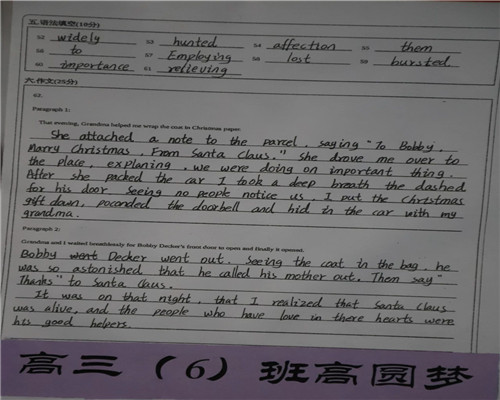 五. 语法填空(10分)
52 widely 53 hunted 54 affection 55 them
56 to 57 Employing 58 lost 59 bursted
60 importance 61 relieving
六.作文(25分)
62.
Paragraph 1:
That evening, Grandma helped me wrap the coat in Christmas paper.
She attached a note to the parcel, saying "To Bobby,
Marry Christmas, From Santa Claus." She drove me over to
the place, explaning, we were doing on important thing.
After she packed the car I took a deep breath the dashed
for his door. Seeing no people notice us, I put the Christmas
gift down, poconded the doorbell and hid in the car with my
grandma.
Paragraph 2:
Grandma and I waited breathlessly for Bobby Decker's front door to open and finally it opened.
Bobby went Decker went out. Seeing the coat in the bag, he
was so astonished that he called his mother out. Them say "
Thanks" to Santa Claus.
It was on that night, that I realized that Santa Claus
was alive, and the people who have love in there hearts were
his good helpers.
高三（6）班高圆梦